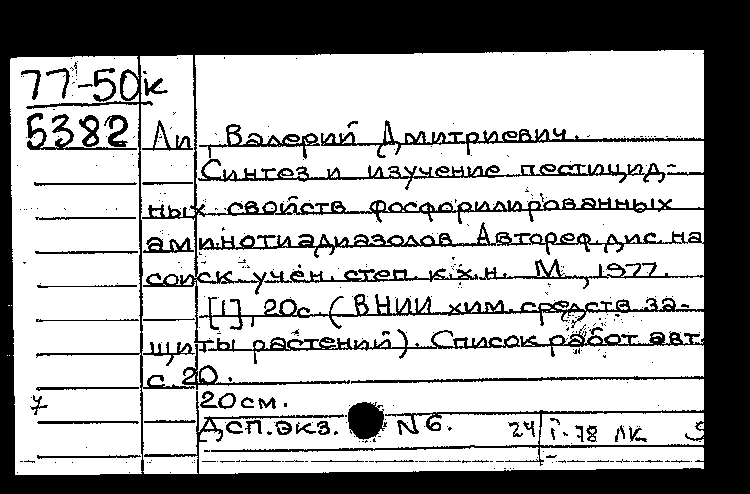 77-50к
5382 Ли, Валерий Дмитриевич.
Синтез и изучение пестицид-
ных свойств фосфорилированных
аминотиадиазолов Автореф. дис. на
соиск. учен. степ. к.х.н. М., 1977.
[1], 20с. (ВНИИ хим. средств за-
щиты растений). Список работ авт.
с. 20.
20 см.
Дсп. экз. N 6. 24/I-78 ЛК